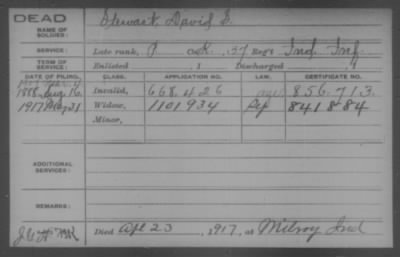 DEAD
NAME OF SOLDIER:
Stewart David S.
SERVICE:
Late rank, P Co K, 37 Reg't Ind Inf.
TERM OF SERVICE:
Enlisted , 1 Discharged , 1
DATE OF FILING. CLASS. APPLICATION NO. LAW. CERTIFICATE NO.
1888 Aug 16 Invalid, 668,426 856,713.
1917 May 31 Widow, 1101934 841884
Minor,
ADDITIONAL SERVICES:
REMARKS:
Died Apl 23, 1917, at Milroy Ind